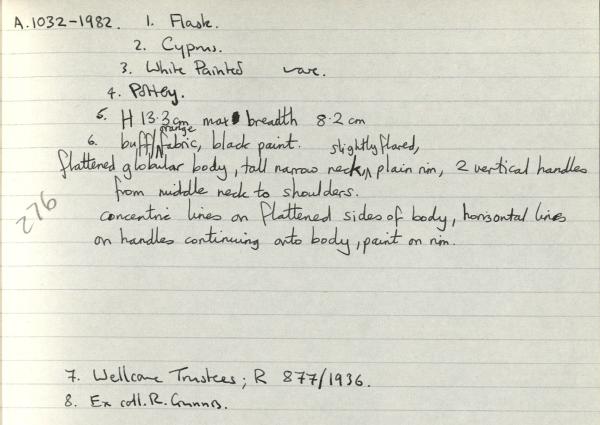 A.1032-1982. 1. Flask.
2. Cyprus.
3. White Painted ware.
4. Pottery.
5. H 13.3cm max breadth 8.2 cm
6. buff/orange fabric, black paint.
flattened globular body, tall narrow neck, slightly flared, plain rim, 2 vertical handles
from middle neck to shoulders.
concentric lines on flattened sides of body, horisontal lines
on handles continuing onto body, paint on rim.
276
7. Wellcome Trustees; R 877/1936.
8. Ex coll. R. Gunnis.